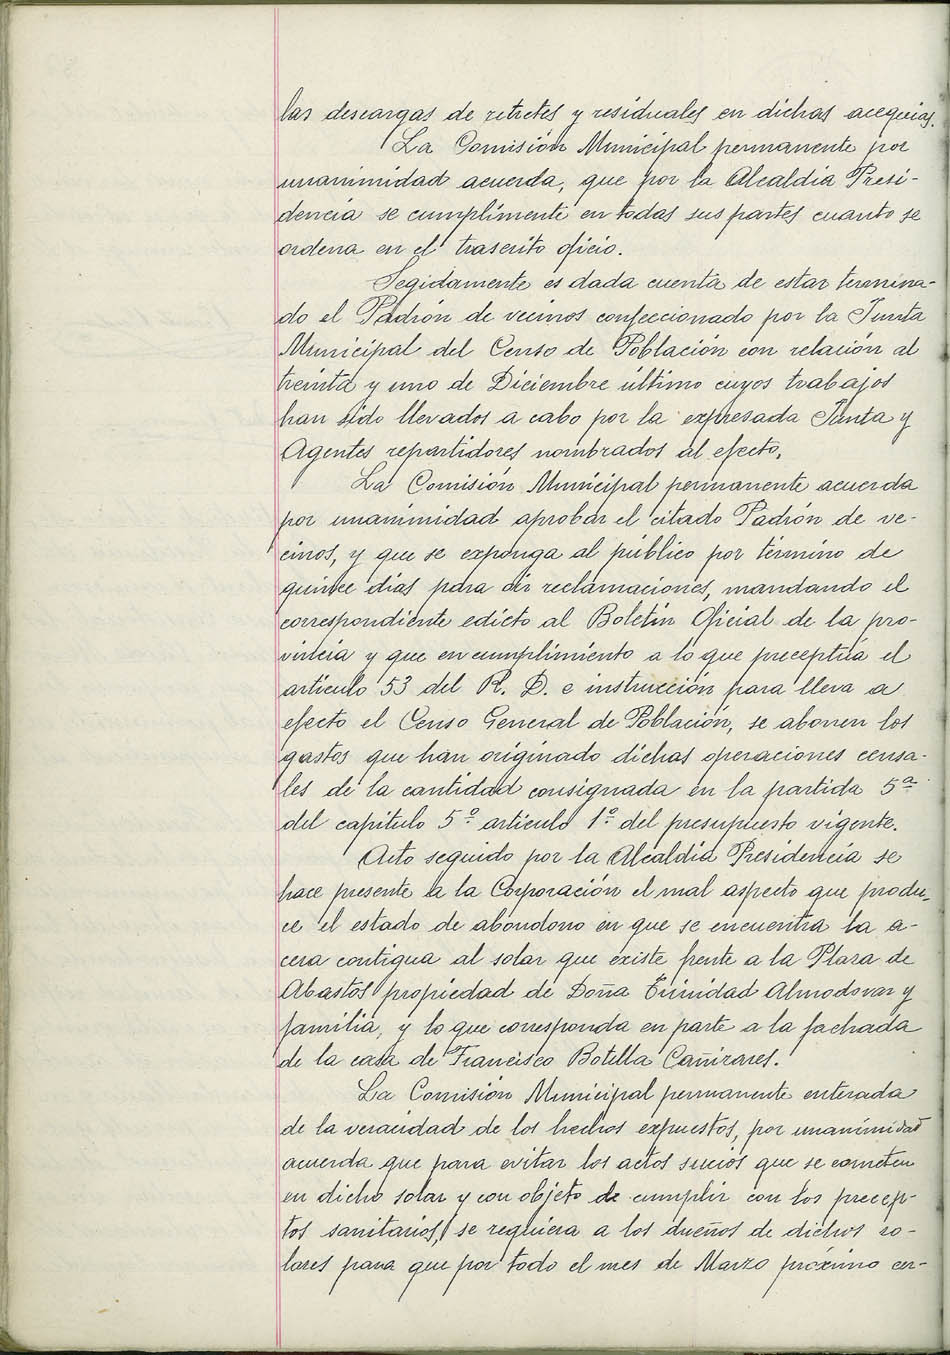 las descargas de retretes y residuales en dichas acequias.
La Comisión Municipal permanente por
unanimidad acuerda, que por la Alcaldia Presi-
dencia se cumplimente en todas sus partes cuanto se
ordena en el trascrito oficio.
Segidamente es dada cuenta de estar termina-
do el Padrón de vecinos confeccionado por la Junta
Municipal del Censo de Población con relación al
treinta y uno de Diciembre último cuyos trabajos
han sido llevados a cabo por la expresada Junta y
Agentes repartidores nombrados al efecto.
La Comisión Municipal permanente acuerda
por unanimidad aprobar el citado Padrón de ve-
cinos, y que se exponga al público por término de
quince dias para oir reclamaciones, mandando el
correspondiente edicto al Boletin Oficial de la pro-
vincia y que en cumplimiento a lo que preceptúa el
articulo 53 del R. D. e instrucción para lleva a
efecto el Censo General de Población, se abonen los
gastos que han originado dichas operaciones censa-
les de la cantidad consignada en la partida 5ª
del capitulo 5º articulo 1º del presupuesto vigente.
Acto seguido por la Alcaldia Presidencia se
hace presente a la Corporación el mal aspecto que produ-
ce el estado de abondono en que se encuentra la a-
cera contigua al solar que existe frente a la Plaza de
Abastos propiedad de Doña Trinidad Almodovar y
familia, y lo que corresponda en parte a la fachada
de la casa de Francisco Botella Cañizares.
La Comisión Municipal permanente enterada
de la veracidad de los hechos expuestos, por unanimidad
acuerda que para evitar los actos sucios que se cometen
en dicho solar y con objeto de cumplir con los precep-
tos sanitarios, se requiera a los dueños de dichos so-
lares para que por todo el mes de Marzo próximo cer-